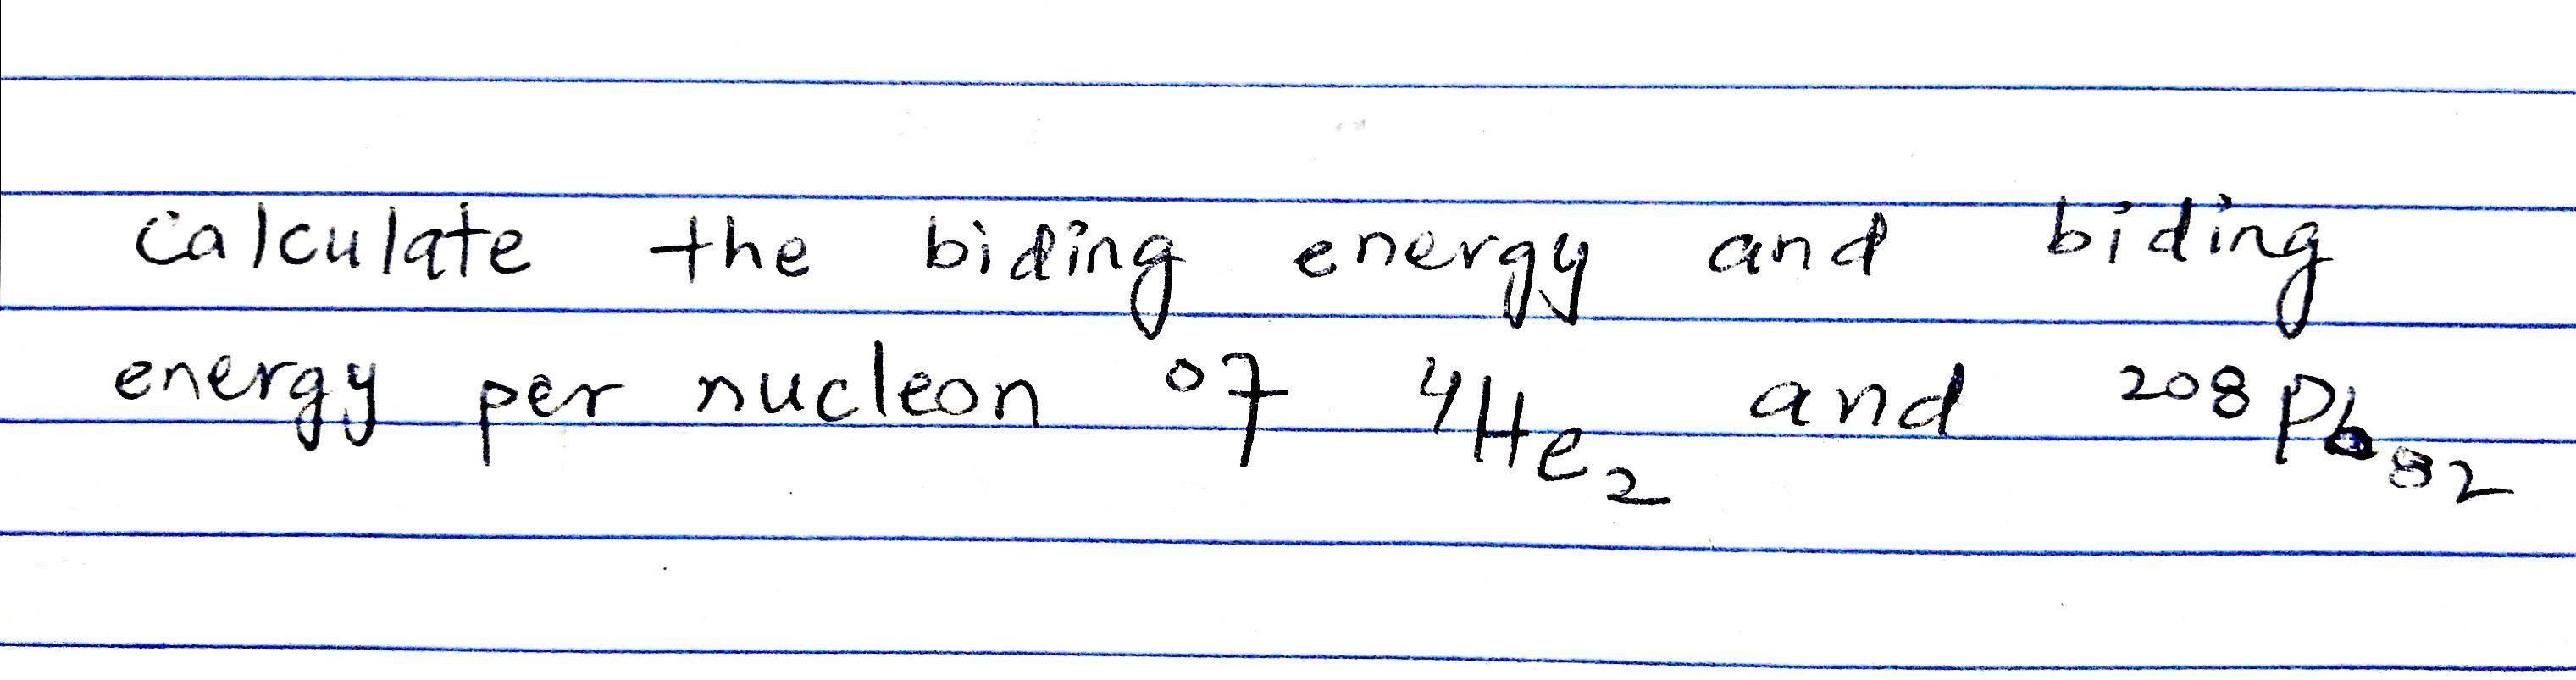 calculate the biding energy and biding
energy per nucleon of ⁴He₂ and ²⁰⁸Pb₈₂